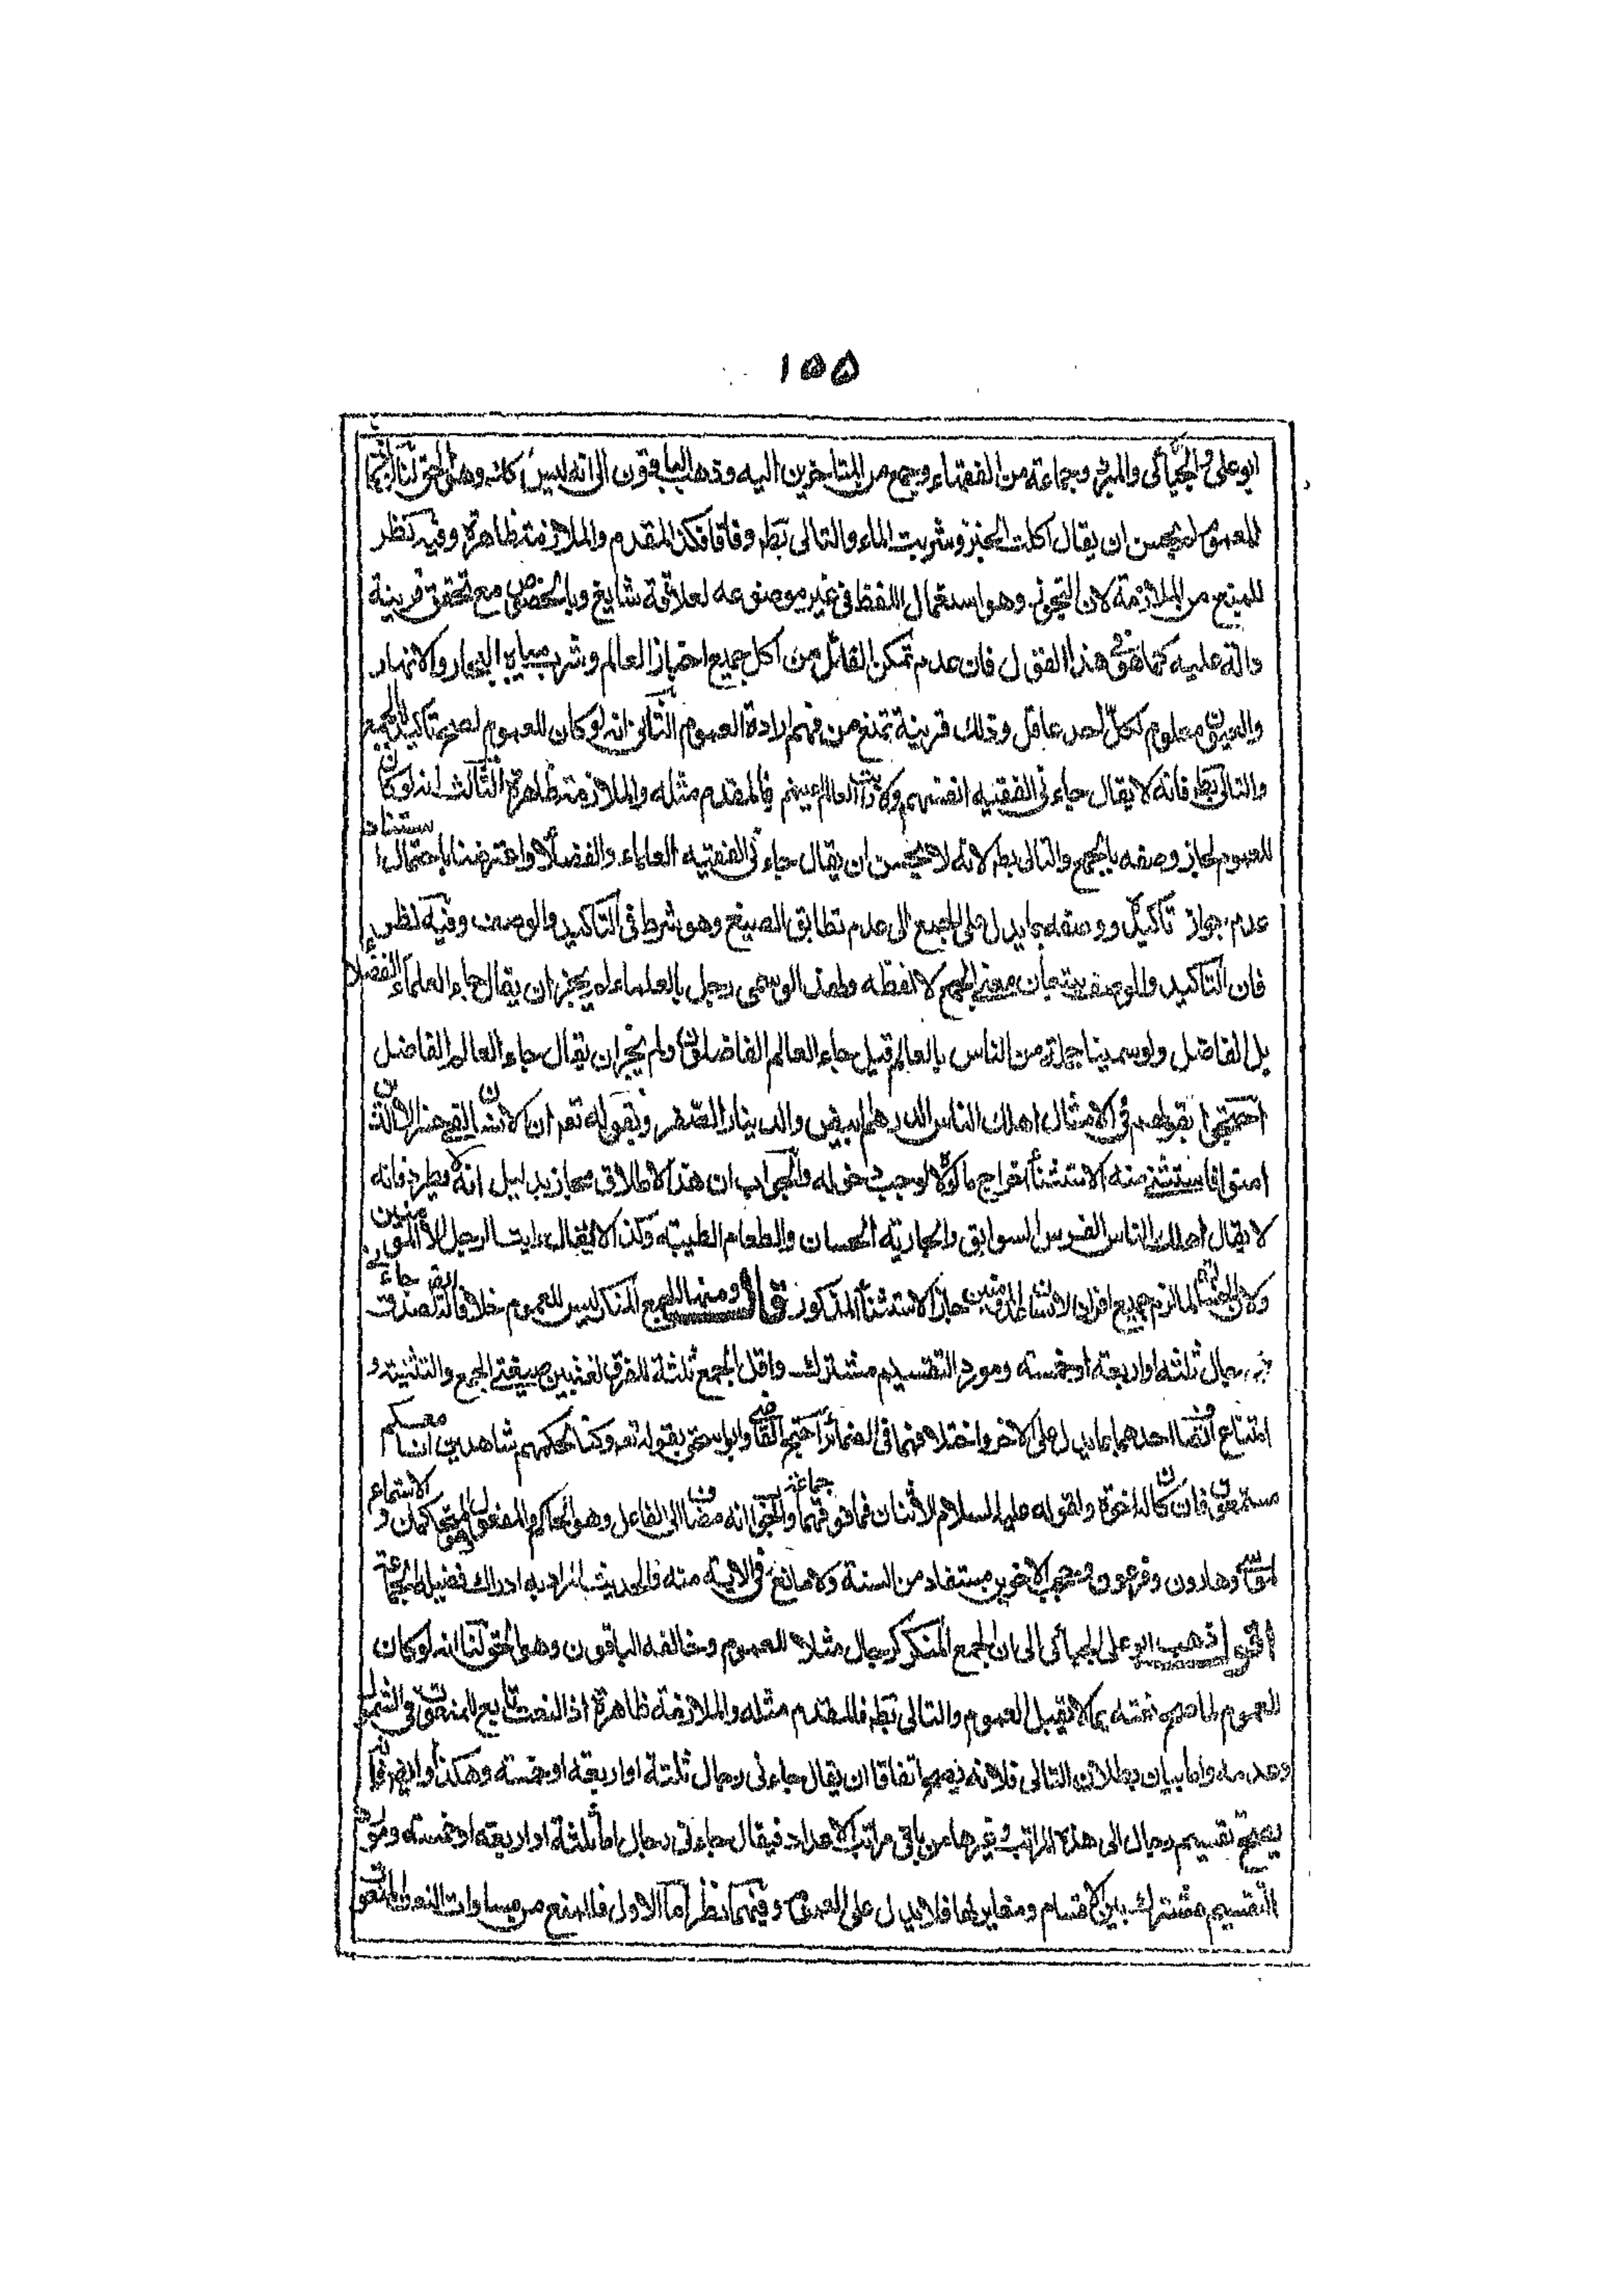 ١٥٥
ابو على الجبائى والمبرد وجماعة من الفقهاء وجمع من المتاخرين اليه وذهب الباقون الى انه ليس كك وهو الحق لنا
للعموم لحسن ان يقال اكلت الخبز وشربت الماء والتالى بط وفاقا فكذا المقدم والملازمة ظاهرة وفيه نظر
للمنع من الملازمة لان التجوز وهو استعمال اللفظ فى غير موضوعه لعلاقة شايع وبالخصوص مع تحقق قرينة
دالة عليه كما هو فى هذا القول فان عدم تمكن القائل من اكل جميع اخباز العالم وشرب مياه البحار والانهار
والعيون معلوم لكل احد عاقل وذلك قرينة تمنع من فهم ارادة العموم الثانى انه لو كان للعموم لصح تاكيده بالجمع
والتالى بط فانه لا يقال جاءنى الفقيه انفسهم ولا العالم عينهم فالمقدم مثله والملازمة ظاهرة الثالث انه لو كان
للعموم لجاز وصفه بالجمع والتالى بط لانه لا يحسن ان يقال جاءنى الفقيه العلماء والفضلا واعترضنا باحتمال استناد
عدم جواز تاكيده ووصفه بما يدل على الجمع الى عدم تطابق الصيغ وهو شرط فى التاكيد والوصف وفيه نظر
فان التاكيد والوصف يتبعان معنى الجمع لا لفظه ولهذا لو سمى رجل بالعلماء لم يجز ان يقال جاء العلماء الفضلا
بل الفاضل ولو سمينا جملة من الناس بالعالم قيل جاء العالم الفاضلون ولم يجز ان يقال جاء العالم الفاضل
احتجوا بقولهم فى الامثال اهلك الناس الدرهم البيض والدينار الصفر وبقوله تعم ان الانسان لفى خسر الا الذين
امنوا فاستثنى منه الاستثناء اخراج ما لولاه لوجب دخوله والجواب ان هذا الاطلاق مجاز بدليل انه لا يطرد فانه
لا يقال اهلك الناس الفرس السوابق والجارية الحسان والطعام الطيبة وكذا لا يقال رايت الرجل الا المومنين
ولان الخسر لما لزم جميع افراد الانسان الا المومنين جاز الاستثناء المذكور قال ومنها الجمع المنكر ليس للعموم خلافا لصدق جاءنى
رجال ثلثة او اربعة او خمسة ومورد التقسيم مشترك واقل الجمع ثلثة للفرق بين صيغتى الجمع والتثنية و
امتناع اتصاف احدهما بما يدل على الاخر واختلافهما فى الضمائر احتج القاضى وابو اسحق بقوله تعم وكنا لحكمهم شاهدين انا معكم
مستمعون فان كان له اخوة ولقوله عليه السلام الاثنان فما فوقهما جماعة والجواب انه مضاف الى الفاعل وهو الحاكم والمفعول وهو المتحاكمان و الاستماع
لموسى وهارون وفرعون وحجب الاخوين مستفاد من السنة ولا مانع فى الاية منه والحديث المراد به ادراك فضيلة الجماعة
اقول ذهب ابو على الجبائى الى ان الجمع المنكر كرجال مثلا للعموم وخالفه الباقون وهو الحق لنا انه لو كان
للعموم لما صح نعته بما لا يقبل العموم والتالى بط فالمقدم مثله والملازمة ظاهرة اذ النعت تابع للمنعوت فى الشمول
وعدمه واما بيان بطلان التالى فلانه يصح اتفاقا ان يقال جاءنى رجال ثلثة او اربعة او خمسة وهكذا وايضا فانه
يصح تقسيم رجال الى هذه المراتب وغيرها من باقى مراتب الاعداد فيقال جاءنى رجال اما ثلثة او اربعة او خمسة ومورد
التقسيم مشترك بين الاقسام ومغاير لها فلا يدل على العموم وفيهما نظر اما الاول فللمنع من مساوات النعت للمنعوت